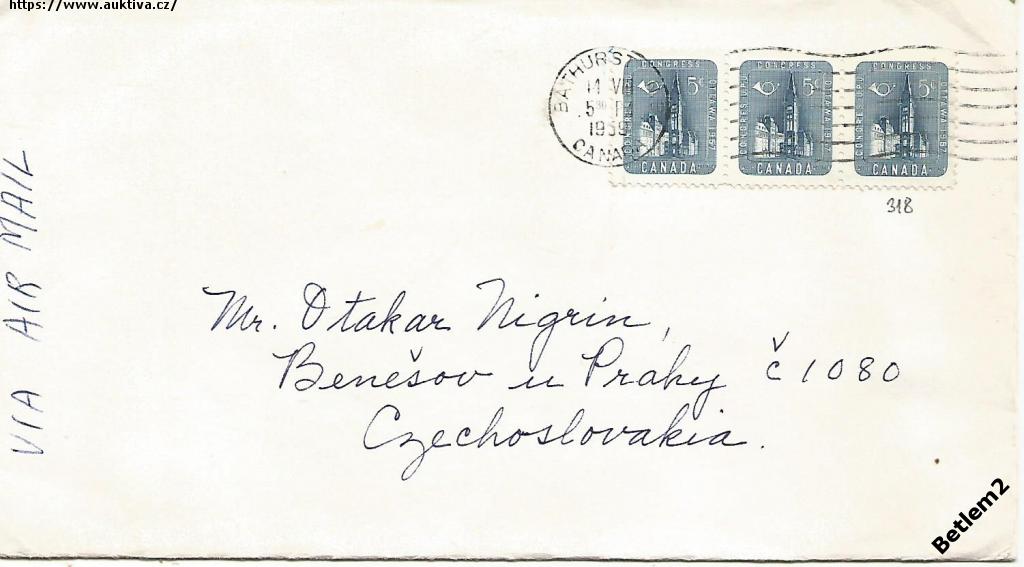 https://www.auktiva.cz/
BATHURST
14 VII
5³⁰ P
1959
CANADA
CONGRESS CONGRESS CONGRESS
5¢ 5¢ 5¢
CONGRÈS U.P.U. CONGRÈS U.P.U. CONGRÈS U.P.U.
OTTAWA 1957 OTTAWA 1957 OTTAWA 1957
CANADA CANADA CANADA
318
VIA AIR MAIL
Mr. Otakar Nigrin,
Benešov u Prahy č 1080
Czechoslovakia.
Betlem2